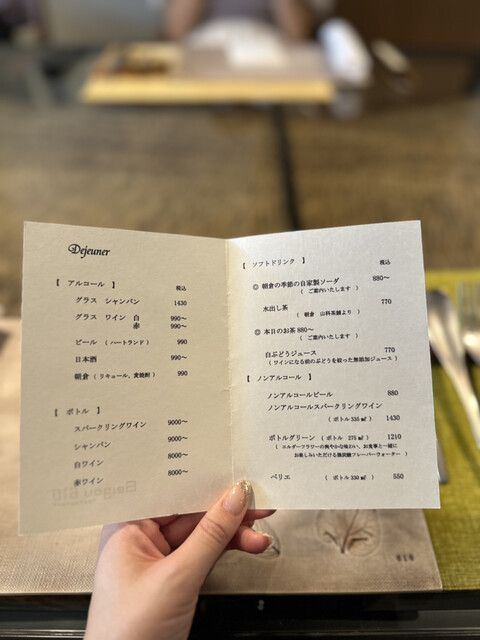 Dejeuner
【 アルコール 】
税込
グラス シャンパン 1430
グラス ワイン 白 990〜
赤 990〜
ビール ( ハートランド ) 990
日本酒 990〜
朝倉 ( リキュール、麦焼酎 ) 990
【 ボトル 】
スパークリングワイン 9000〜
シャンパン 9000〜
白ワイン 8000〜
赤ワイン 8000〜
【 ソフトドリンク 】
税込
◎ 朝倉の季節の自家製ソーダ 880〜
( ご案内いたします )
水出し茶 770
( 朝倉 山科茶舗より )
◎ 本日のお茶 880〜
( ご案内いたします )
白ぶどうジュース 770
( ワインになる前のぶどうを絞った無添加ジュース )
【 ノンアルコール 】
ノンアルコールビール 880
ノンアルコールスパークリングワイン
( ボトル 355 ㎖ ) 1430
ボトルグリーン ( ボトル 275 ㎖ ) 1210
( エルダーフラワーの爽やかな味わい、お食事と一緒に
お楽しみいただける微炭酸フレーバーウォーター )
ペリエ ( ボトル 330 ㎖ ) 550